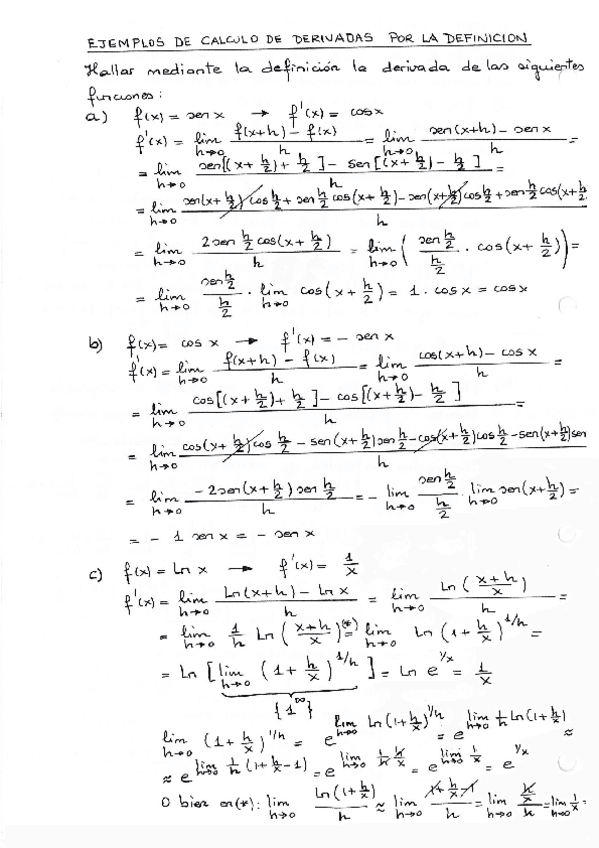 EJEMPLOS DE CALCULO DE DERIVADAS POR LA DEFINICION
Hallar mediante la definición la derivada de las siguientes
funciones:
a) f(x) = sen x → f'(x) = cos x
f'(x) = lim h→0 (f(x+h) - f(x))/h = lim h→0 (sen(x+h) - sen x)/h =
= lim h→0 (sen[(x+h/2)+h/2] - sen[(x+h/2)-h/2])/h =
= lim h→0 (sen(x+h/2) cos h/2 + sen h/2 cos(x+h/2) - sen(x+h/2) cos h/2 + sen h/2 cos(x+h/2
= lim h→0 (2 sen h/2 cos(x+h/2))/h = lim h→0 ((sen h/2)/(h/2) · cos(x+h/2)) =
= lim h→0 (sen h/2)/(h/2) · lim h→0 cos(x+h/2) = 1 · cos x = cos x
b) f(x) = cos x → f'(x) = - sen x
f'(x) = lim h→0 (f(x+h) - f(x))/h = lim h→0 (cos(x+h) - cos x)/h =
= lim h→0 (cos[(x+h/2)+h/2] - cos[(x+h/2)-h/2])/h =
= lim h→0 (cos(x+h/2) cos h/2 - sen(x+h/2) sen h/2 - cos(x+h/2) cos h/2 - sen(x+h/2) sen)/h
= lim h→0 (-2 sen(x+h/2) sen h/2)/h = - lim h→0 (sen h/2)/(h/2) · lim h→0 sen(x+h/2) =
= - 1 sen x = - sen x
c) f(x) = Ln x → f'(x) = 1/x
f'(x) = lim h→0 (Ln(x+h) - Ln x)/h = lim h→0 (Ln((x+h)/x))/h =
= lim h→0 1/h Ln((x+h)/x) (*)= lim h→0 Ln(1+h/x)^1/h =
= Ln [lim h→0 (1+h/x)^1/h] = Ln e^1/x = 1/x
{1^∞}
lim h→0 (1+h/x)^1/h = e^lim h→0 Ln(1+h/x)^1/h = e^lim h→0 1/h Ln(1+h/x) ≈
≈ e^lim h→0 1/h (1+h/x-1) = e^lim h→0 1/h h/x = e^lim h→0 1/x = e^1/x
O bien en (*): lim h→0 (Ln(1+h/x))/h ≈ lim h→0 (1+h/x-1)/h = lim h→0 (h/x)/h = lim h→0 1/x =